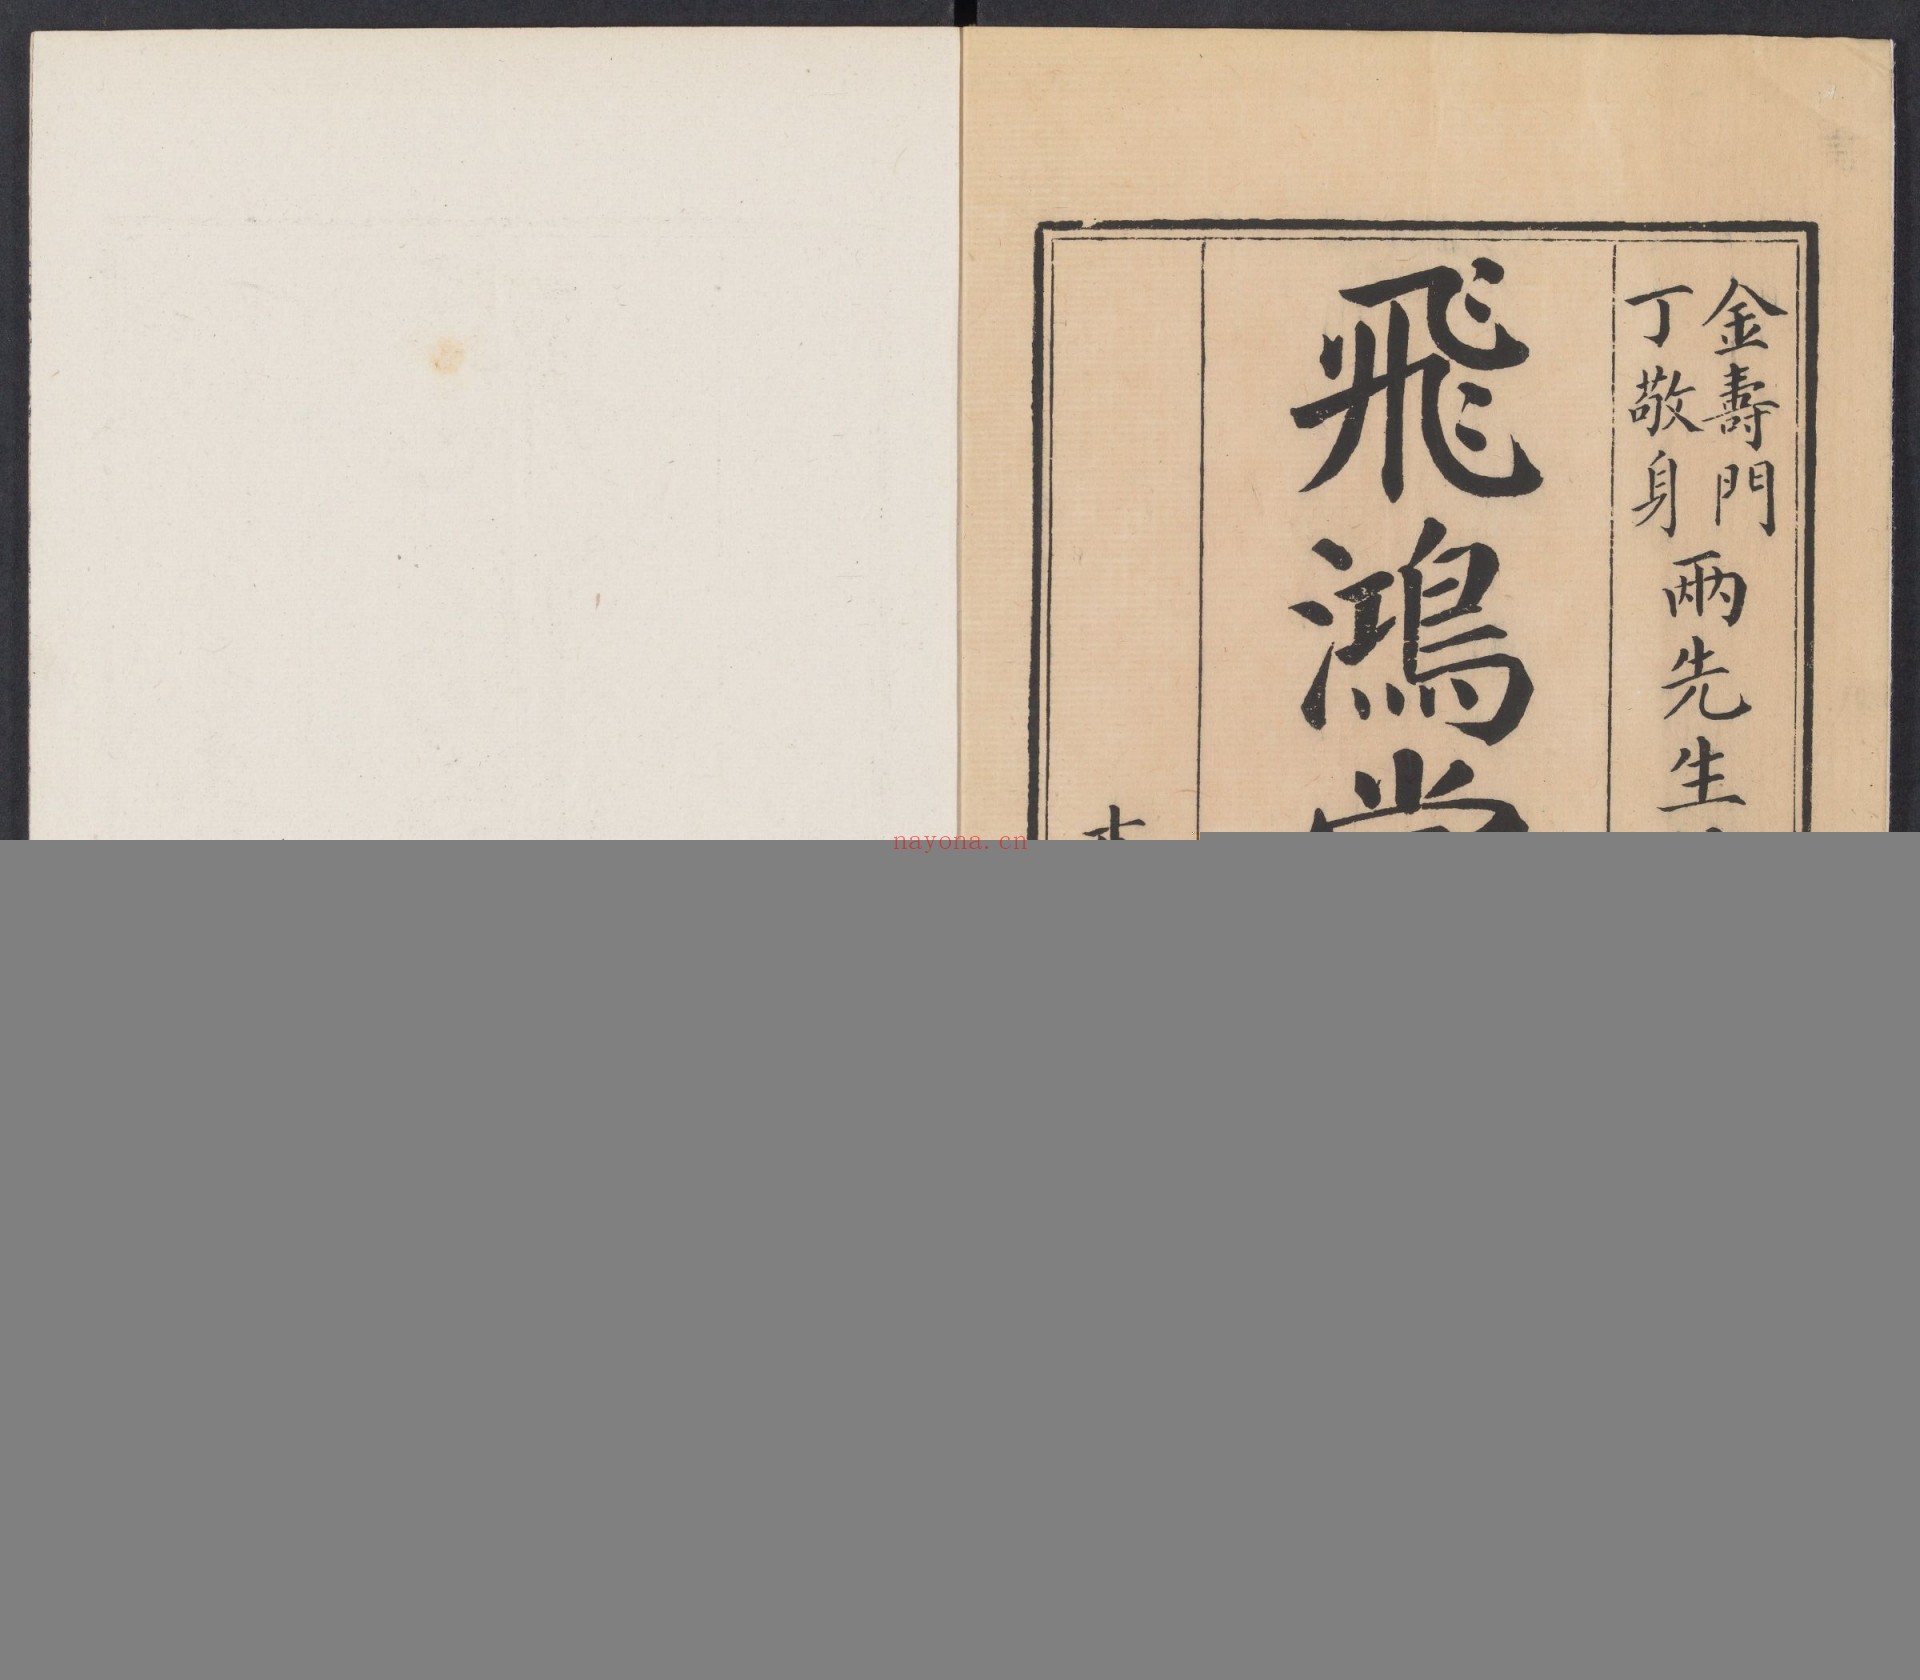 金壽門
丁敬身
兩先生
飛鴻堂
nayona.cn